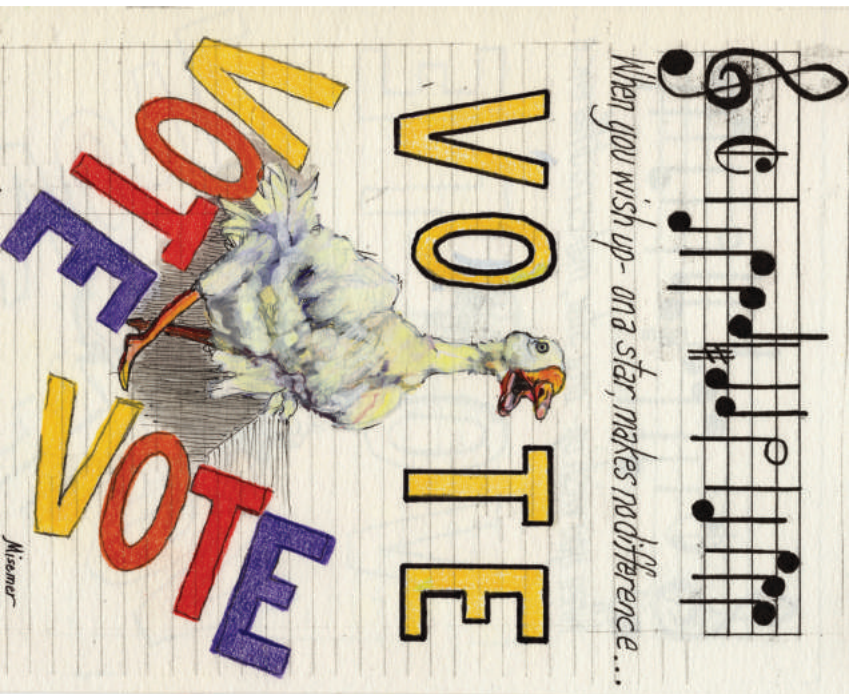 When you wish up- on a star, makes no difference...
VOTE
VOTE
VOTE
Misemer